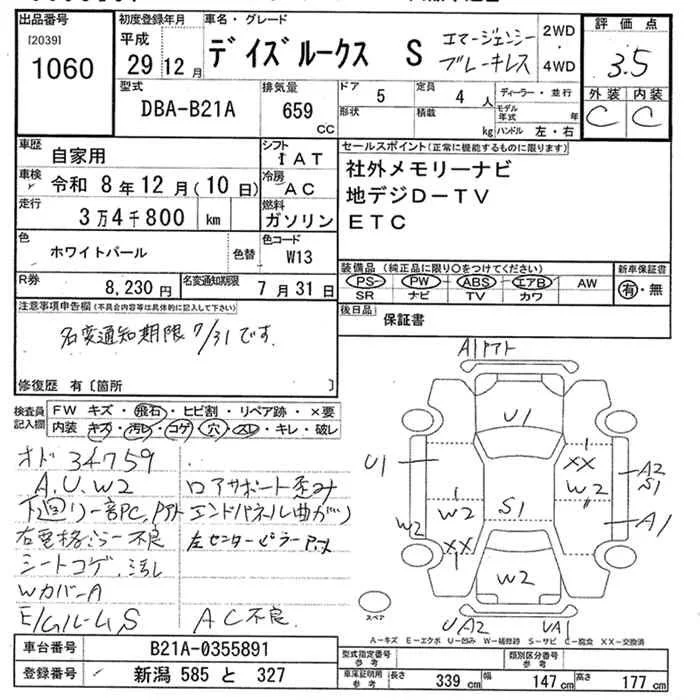 出品番号 初度登録年月 車名・グレード 評価点
[2039] 平成
1060 29 12月 デイズルークス S エマージェンシーブレーキレス 2WD 4WD 3.5
型式 排気量 ドア 定員 ディーラー・並行 外装 内装
DBA-B21A 659 CC 5 4人 C C
形状 積載 kg モデル年式 年 ハンドル 左・右
車歴 自家用 シフト IAT セールスポイント(正常に機能するものに限ります)
車検 令和 8年12月(10日) 冷房 AC 社外メモリーナビ
走行 3万4千800 km 燃料 ガソリン 地デジD-TV
ETC
色 ホワイトパール 色替 色コード W13
R券 8,230円 名変通知期限 7月31日
装備品 (純正品に限り○をつけてください) 新車保証書
PS PW ABS エアB AW 有・無
SR ナビ TV カワ
注意事項申告欄(不具合内容等は具体的に記入して下さい) 後日品 保証書
名変通知期限7/31です
修復歴 有〔箇所 〕
検査員記入欄 FW キズ・飛石・ヒビ割・リペア跡・×要
内装 キズ・汚レ・コゲ・穴・スレ・キレ・破レ
オド 34759
A.U.W2 ロアサポート歪み
下廻り一部PC, エンドパネル曲がり
右電格ミラー不良 左センターピラー
シートコゲ.汚レ
WカバーA
E/Gルーム S AC不良
A1
U1
U1 XX A2
W2 S1
W2 W2 S1 A1
XX
W2
UA2 UA1
スペア
A-キズ E-エクボ U-凹み W-補修跡 S-サビ C-腐食 XX-交換済
車台番号 B21A-0355891 型式指定番号 参考 類別区分番号 参考
登録番号 新潟 585 と 327 車庫証明用 参考 長さ 339 cm 幅 147 cm 高さ 177 cm